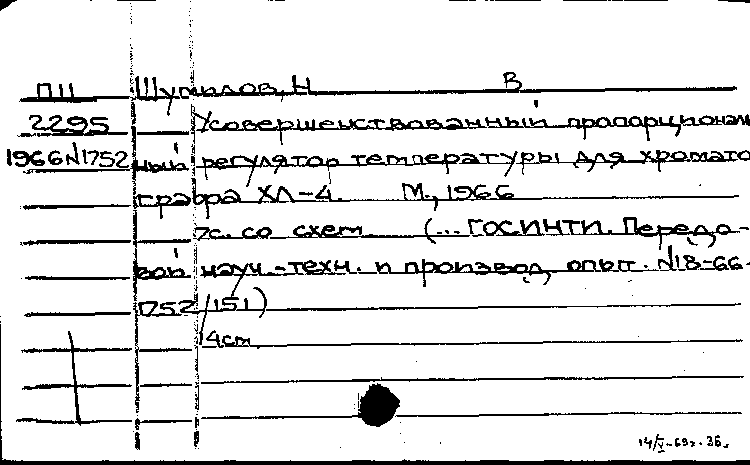 ПП Шутилов, Н В
2295 Усовершенствованный пропорционал
1966№1752 ный регулятор температуры для хромато
графа ХЛ-4. М., 1966
7с. со схем. (... ГОСИНТИ. Передо-
вой науч.-техн. и производ. опыт. №18-66-
1752/151)
14см.
14/V-69г. 36.